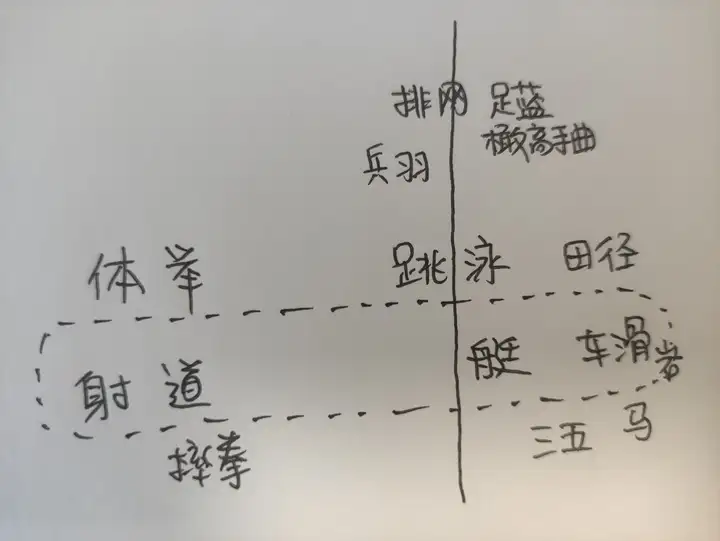 排网 足蓝
橄高手曲
兵羽
体 举 跳 泳 田径
射 道 艇 车滑岩
摔拳 三五 马